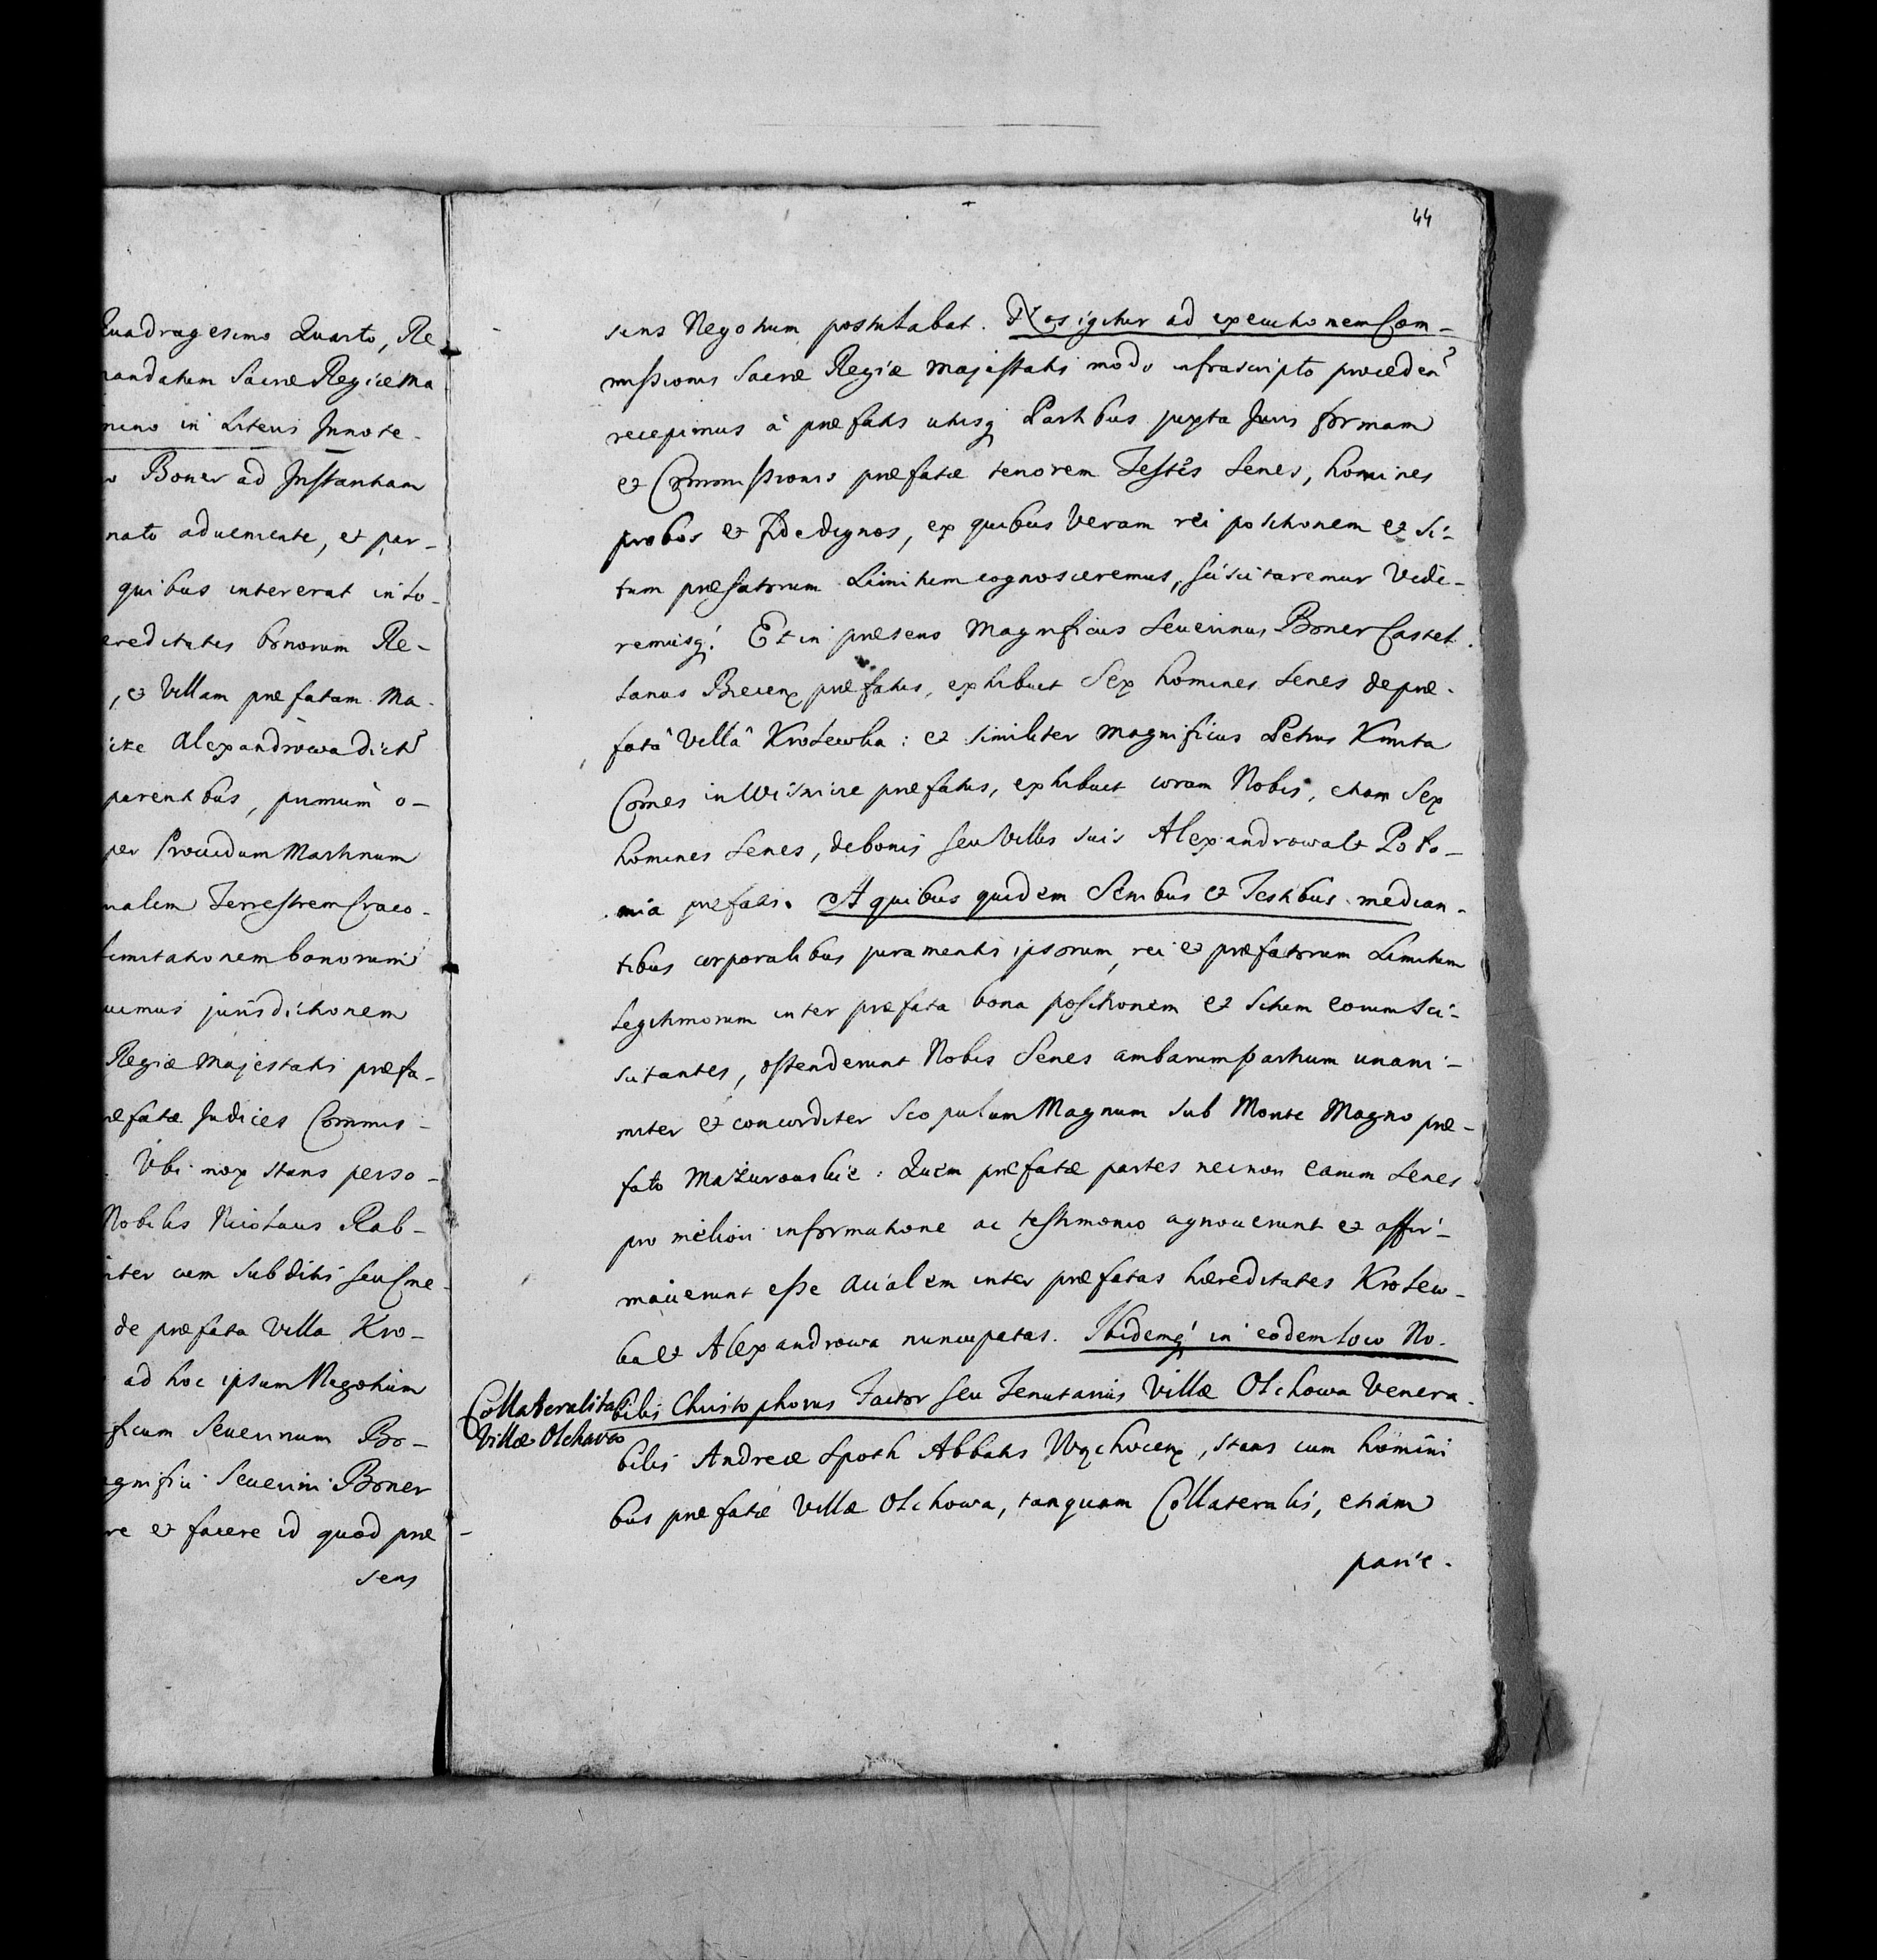 Quadragesimo Quarto, Re
mandatum Sacræ Regiæ Ma
mino in Literis Innote-
o Boner ad Instantiam
nato adveniente, et per-
quibus intererat in lo-
ereditatis bonorum Re-
, et Villam præfatam Ma-
Alexandrowa dict
parentibus, primum o-
per Providum Martinum
nalem Terrestrem Craco-
limitationem bonorum
uimus jurisdictionem
Regiæ Majestatis præfa-
æfatæ Judices Commis-
Vbi mox stans perso-
Nobilis Nicolaus Rab-
iter cum Subditis seu Cme
de præfata Villa Kro-
ad hoc ipsum Negotium
ficum Seuerinum Bo-
agnifici Seuerini Boner
re et facere id quod præ
sens
44
sens Negotium postulabat. Nos igitur ad executionem Com-
missionis Sacræ Regiæ Majestatis modo infrascripto proceden
recepimus à præfatis utrisq Partibus juxta Juris formam
et Commissionis præfatæ tenorem Testes Senes, homines
probos et fide dignos, ex quibus Veram rei positionem et si-
tum præfatorum Limitum cognosceremus, sciscitaremur Vide-
remusq. Et in præsens Magnificus Seuerinus Boner Castel
lanus Biecen præfatus, exhibuit Sex homines Senes de præ-
fatâ Villâ Krolewka: et similiter Magnificus Petrus Kmita
Comes in Wisnicze præfatus, exhibuit coram Nobis, etiam Sex
homines Senes, de bonis seu Villis suis Alexandrowa et Polo-
mia præfatis. A quibus quidem Senibus et Testibus median-
tibus corporalibus juramentis ipsorum, rei et præfatorum Limitum
legitimorum inter præfata bona positionem et Situm eorum sci-
scitantes, ostenderunt Nobis Senes ambarum partium unani-
miter et concorditer Scopulum Magnum sub Monte Magno præ-
fato Mazurowskie: Quem præfatæ partes necnon earum Senes
pro meliori informatione ac testimonio agnouerunt et affir-
mauerunt esse aualem inter præfatas hæreditates Krolew-
ka et Alexandrowa nuncupatas. Ibidemq in eodem loco No-
Collateralitas
Villæ Olchava
bilis Christophorus Factor seu Tenutarius Villæ Olchowa Venera-
bilis Andreæ Spoth Abbatis Wąchocen, stans cum homini
bus præfatæ Villæ Olchowa, tanquam Collateralis, etiam
parie-